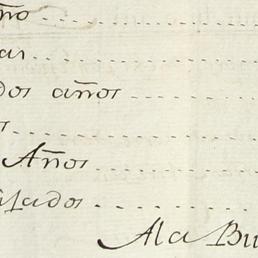 ño
as
dos años
s
Años
sados
Ala Bu